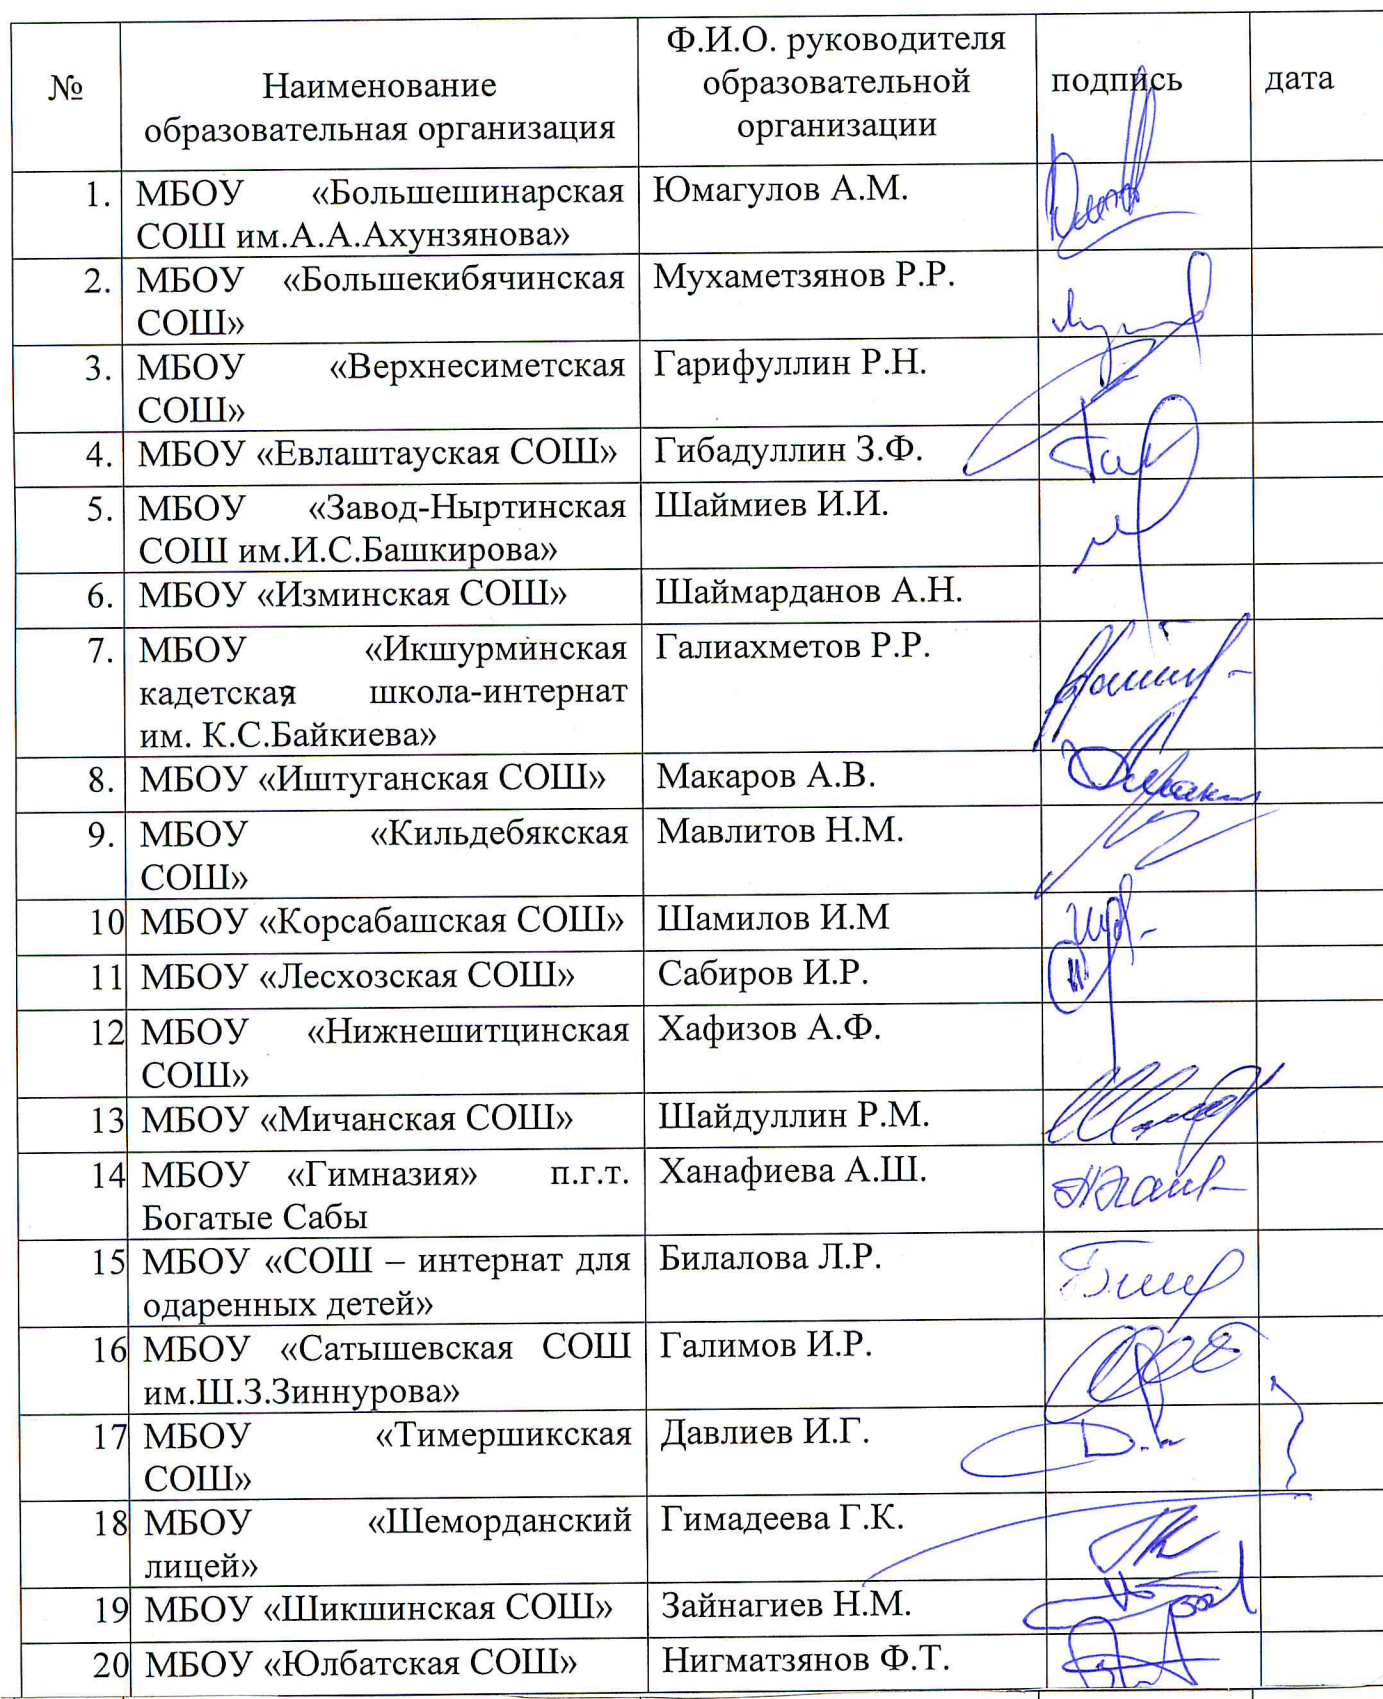 №
Наименование
образовательная организация
Ф.И.О. руководителя
образовательной
организации
подпись
дата
1. МБОУ «Большешинарская Юмагулов А.М.
СОШ им.А.А.Ахунзянова»
2. МБОУ «Большекибячинская Мухаметзянов Р.Р.
СОШ»
3. МБОУ «Верхнесиметская Гарифуллин Р.Н.
СОШ»
4. МБОУ «Евлаштауская СОШ» Гибадуллин З.Ф.
5. МБОУ «Завод-Ныртинская Шаймиев И.И.
СОШ им.И.С.Башкирова»
6. МБОУ «Изминская СОШ» Шаймарданов А.Н.
7. МБОУ «Икшурминская Галиахметов Р.Р.
кадетская школа-интернат
им. К.С.Байкиева»
8. МБОУ «Иштуганская СОШ» Макаров А.В.
9. МБОУ «Кильдебякская Мавлитов Н.М.
СОШ»
10 МБОУ «Корсабашская СОШ» Шамилов И.М
11 МБОУ «Лесхозская СОШ» Сабиров И.Р.
12 МБОУ «Нижнешитцинская Хафизов А.Ф.
СОШ»
13 МБОУ «Мичанская СОШ» Шайдуллин Р.М.
14 МБОУ «Гимназия» п.г.т. Ханафиева А.Ш.
Богатые Сабы
15 МБОУ «СОШ – интернат для Билалова Л.Р.
одаренных детей»
16 МБОУ «Сатышевская СОШ Галимов И.Р.
им.Ш.З.Зиннурова»
17 МБОУ «Тимершикская Давлиев И.Г.
СОШ»
18 МБОУ «Шеморданский Гимадеева Г.К.
лицей»
19 МБОУ «Шикшинская СОШ» Зайнагиев Н.М.
20 МБОУ «Юлбатская СОШ» Нигматзянов Ф.Т.